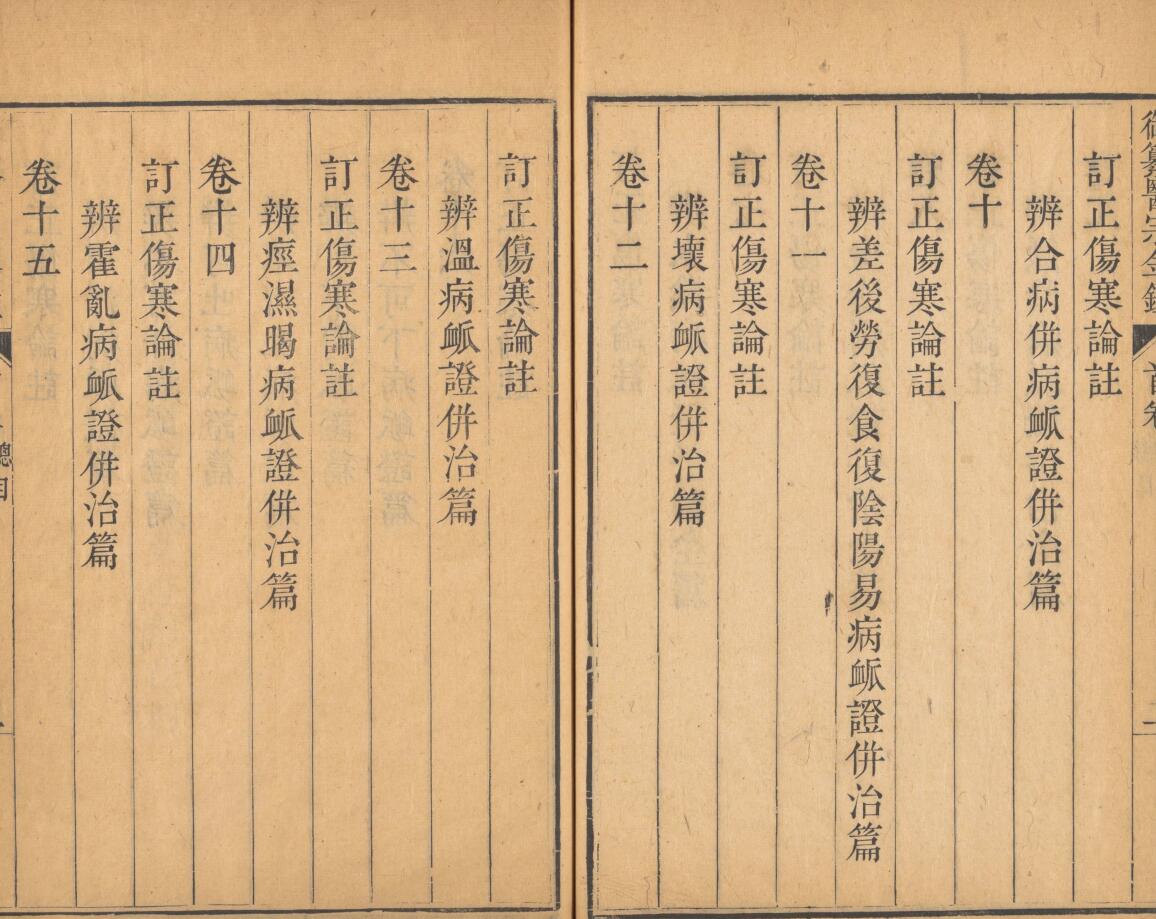 御纂醫宗金鑑
首卷
訂正傷寒論註
辨合病併病衇證併治篇
卷十
訂正傷寒論註
辨差後勞復食復陰陽易病衇證併治篇
卷十一
訂正傷寒論註
辨壞病衇證併治篇
卷十二
訂正傷寒論註
辨溫病衇證併治篇
卷十三
訂正傷寒論註
辨痙濕暍病衇證併治篇
卷十四
訂正傷寒論註
辨霍亂病衇證併治篇
卷十五
總目